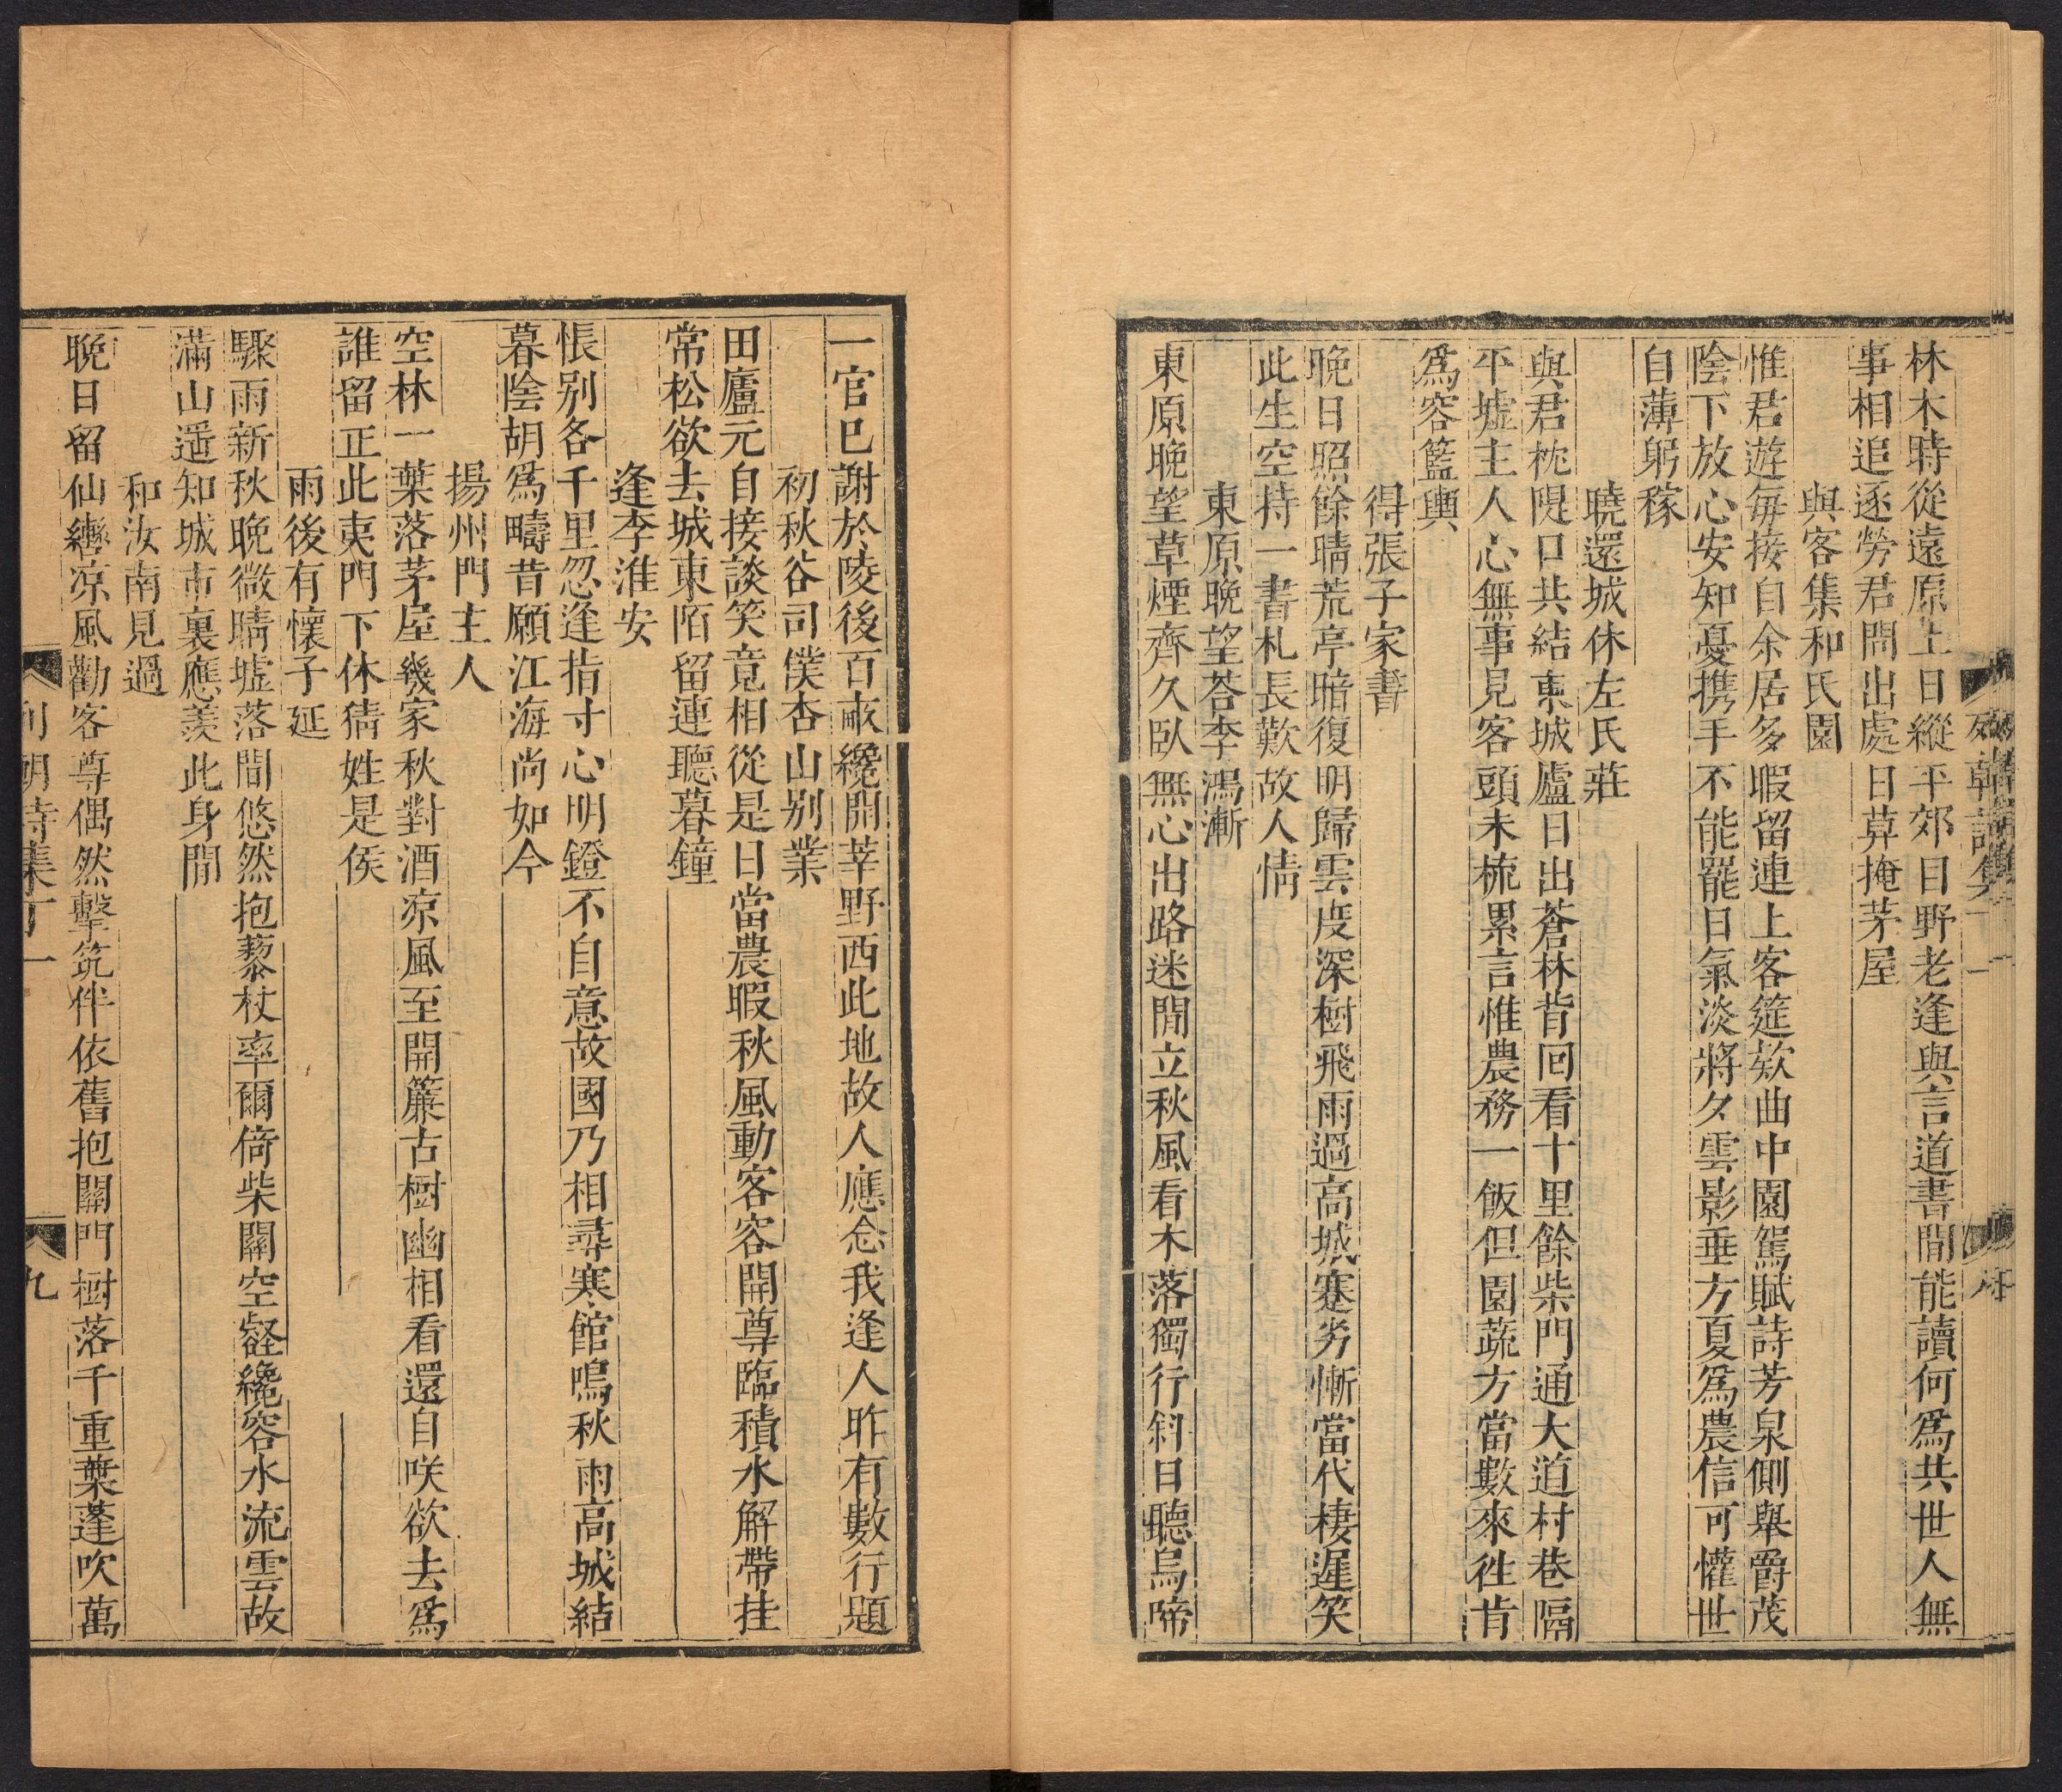 林木時從遠原上日縱平郊日野老逢與言道書閒能讀何爲共世人無
事相追逐勞君問出處日莫掩茅屋
與客集和氏園
惟君遊每接自余居多暇留連上客筵欸曲中園駕賦詩芳泉側舉爵茂
陰下放心安知憂携手不能罷日氣淡將夕雲影垂方夏爲農信可懽世
自薄躬稼
曉還城休左氏莊
與君枕隄口共結東城廬日出蒼林背回看十里餘柴門通大道村巷隔
平墟主人心無事見客頭未梳累言惟農務一飯但園蔬方當數來徃肯
爲容籃輿
得張子家書
晚日照餘晴荒亭暗復明歸雲度深樹飛雨過高城蹇劣慚當代棲遲笑
此生空持一書札長歎故人情
東原晚望荅李鴻漸
東原晚望草煙齊久臥無心出路迷閒立秋風看木落獨行斜日聽烏啼
一官已謝於陵後百畝纔開莘野西此地故人應念我逢人昨有數行題
初秋谷司僕杏山别業
田廬元自接談笑竟相從是日當農暇秋風動客容開尊臨積水解帶挂
常松欲去城東陌留連聽暮鐘
逢李淮安
悵别各千里忽逢指寸心明鐙不自意故國乃相尋寒館鳴秋雨高城結
暮陰胡爲疇昔願江海尚如今
揚州門主人
空林一葉落茅屋幾家秋對酒凉風至開簾古樹幽相看還自咲欲去爲
誰留正此夷門下休猜姓是侯
雨後有懷子延
驟雨新秋晚微晴墟落間悠然抱藜杖率爾倚柴關空壑纔容水流雲故
滿山遥知城市裏應羨此身閒
和汝南見過
晩日留仙轡凉風勸客尊偶然擊筑伴依舊抱關門樹落千重葉蓬吹萬
列朝詩集丁一 九